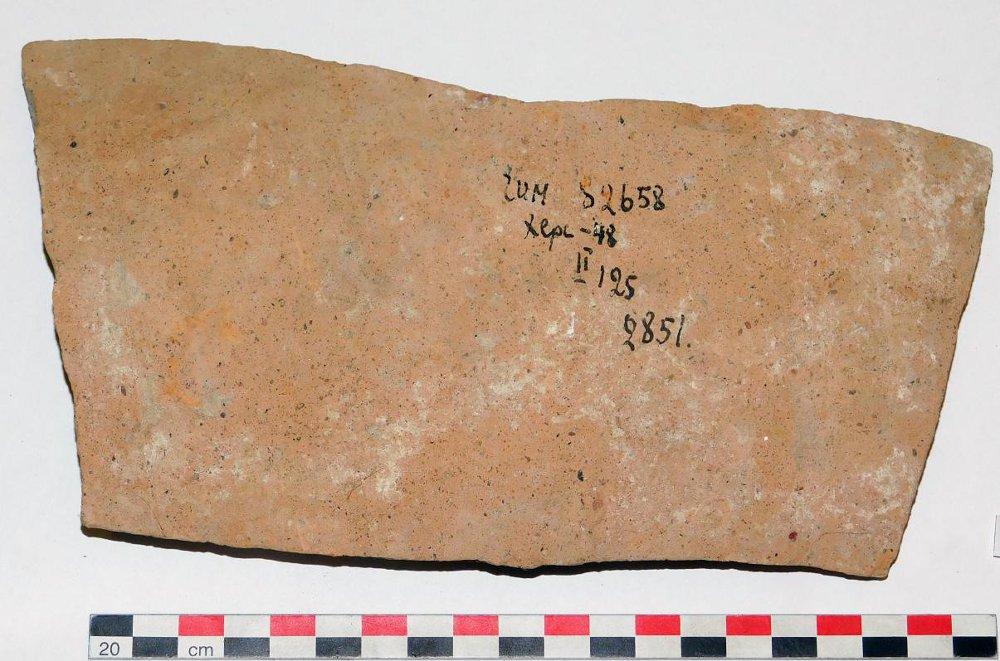 ГИМ 82658
Херс-48
II 125
2851.
20 cm